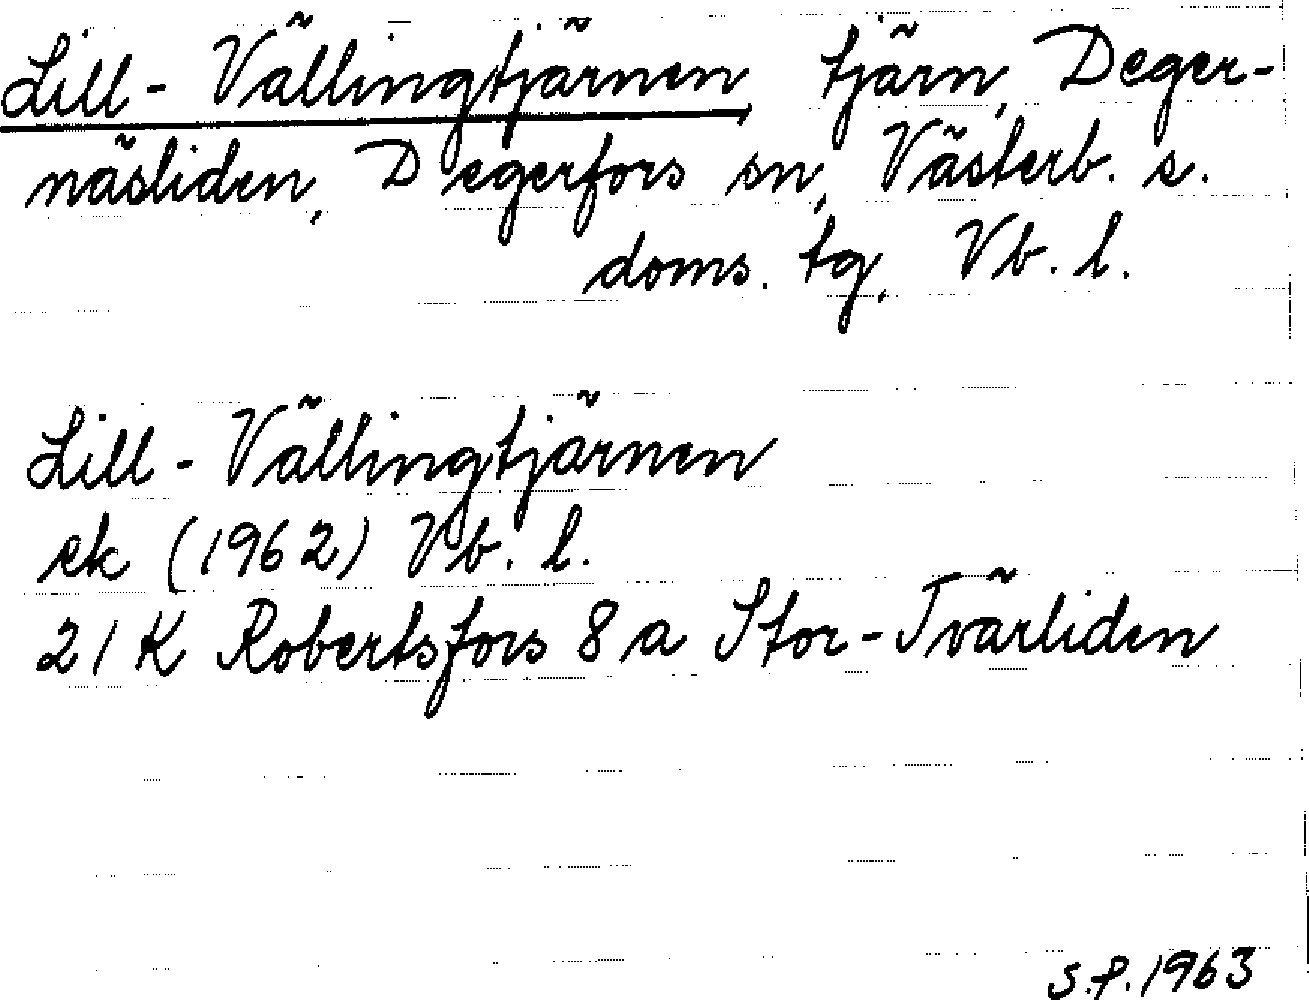 Lill-Vällingtjärnen, tjärn, Deger-
näsliden, Degerfors sn, Västerb. s.
doms. tg, Vb. l.
Lill-Vällingtjärnen
ek (1962) Vb. l.
21 K Robertsfors 8 a Stor-Tvärliden
S.P. 1963